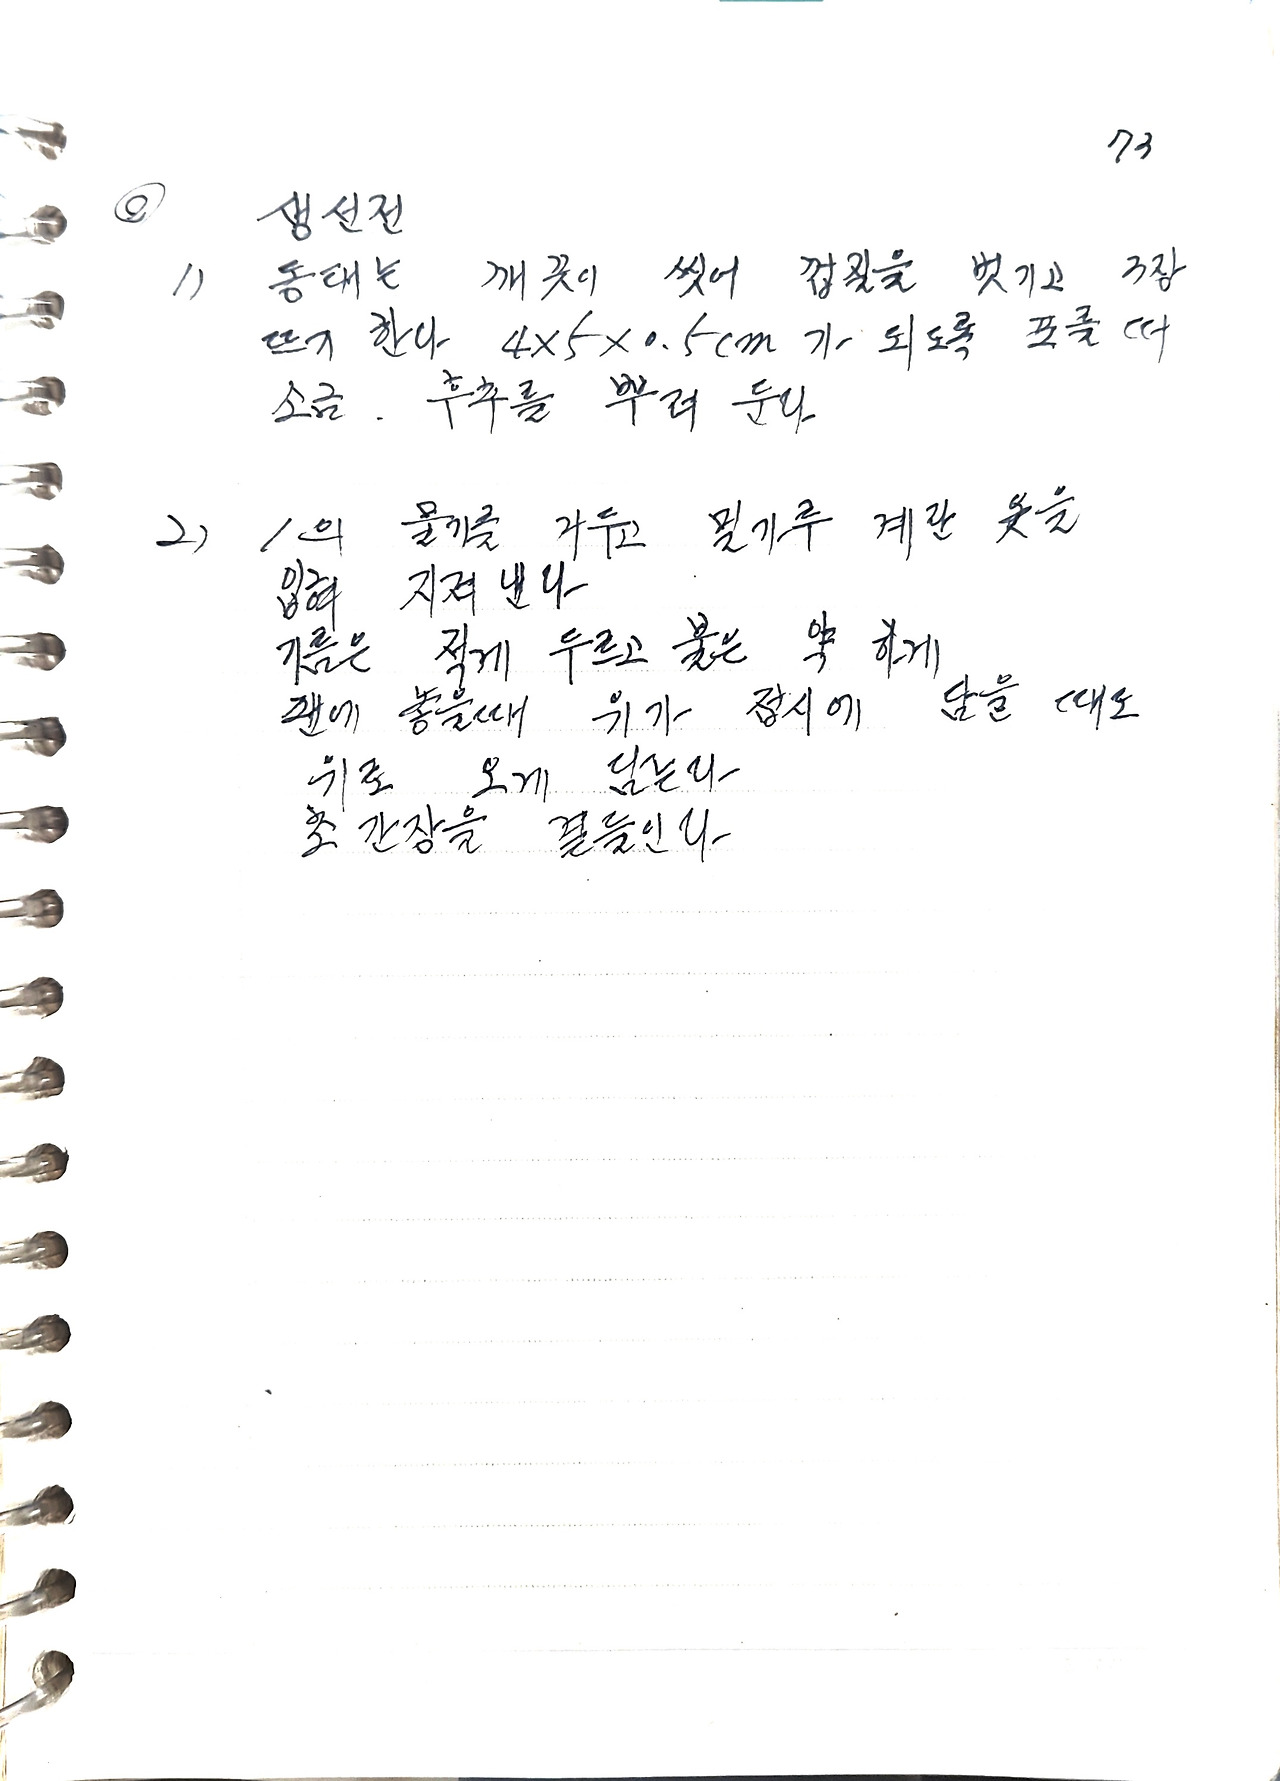 73
◎ 생선전
1) 동태는 깨끗이 씻어 껍질을 벗기고 3장
뜨기 한다 4x5x0.5cm가 되도록 포를 떠
소금. 후추를 뿌려 둔다
2) 1의 물기를 거두고 밀가루 계란 옷을
입혀 지져 낸다
기름은 적게 두르고 불은 약 하게
팬에 놓을때 위가 접시에 담을 때도
위로 오게 담는다
초간장을 곁들인다